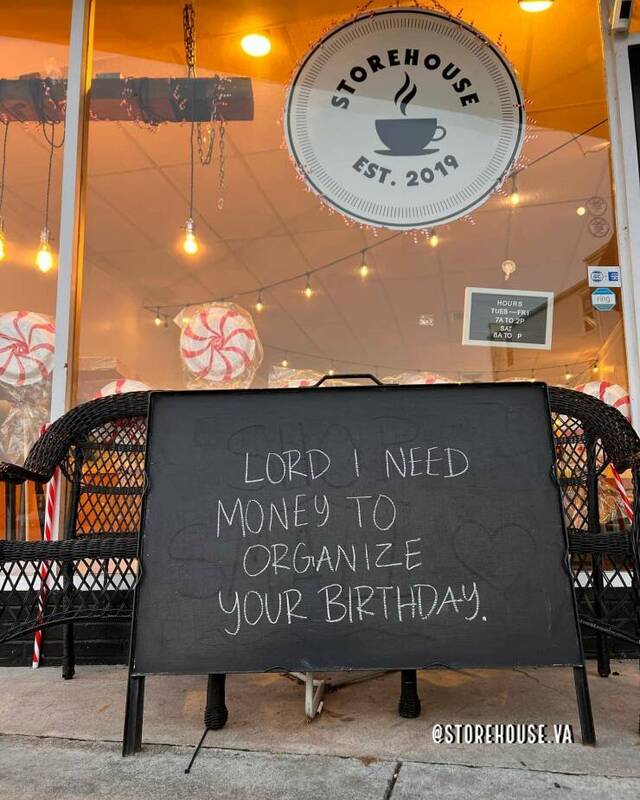 STOREHOUSE
EST. 2019
HOURS
TUES—FRI
7A TO 2P
SAT
8A TO P
ring
LORD I NEED
MONEY TO
ORGANIZE
YOUR BIRTHDAY.
@STOREHOUSE.VA